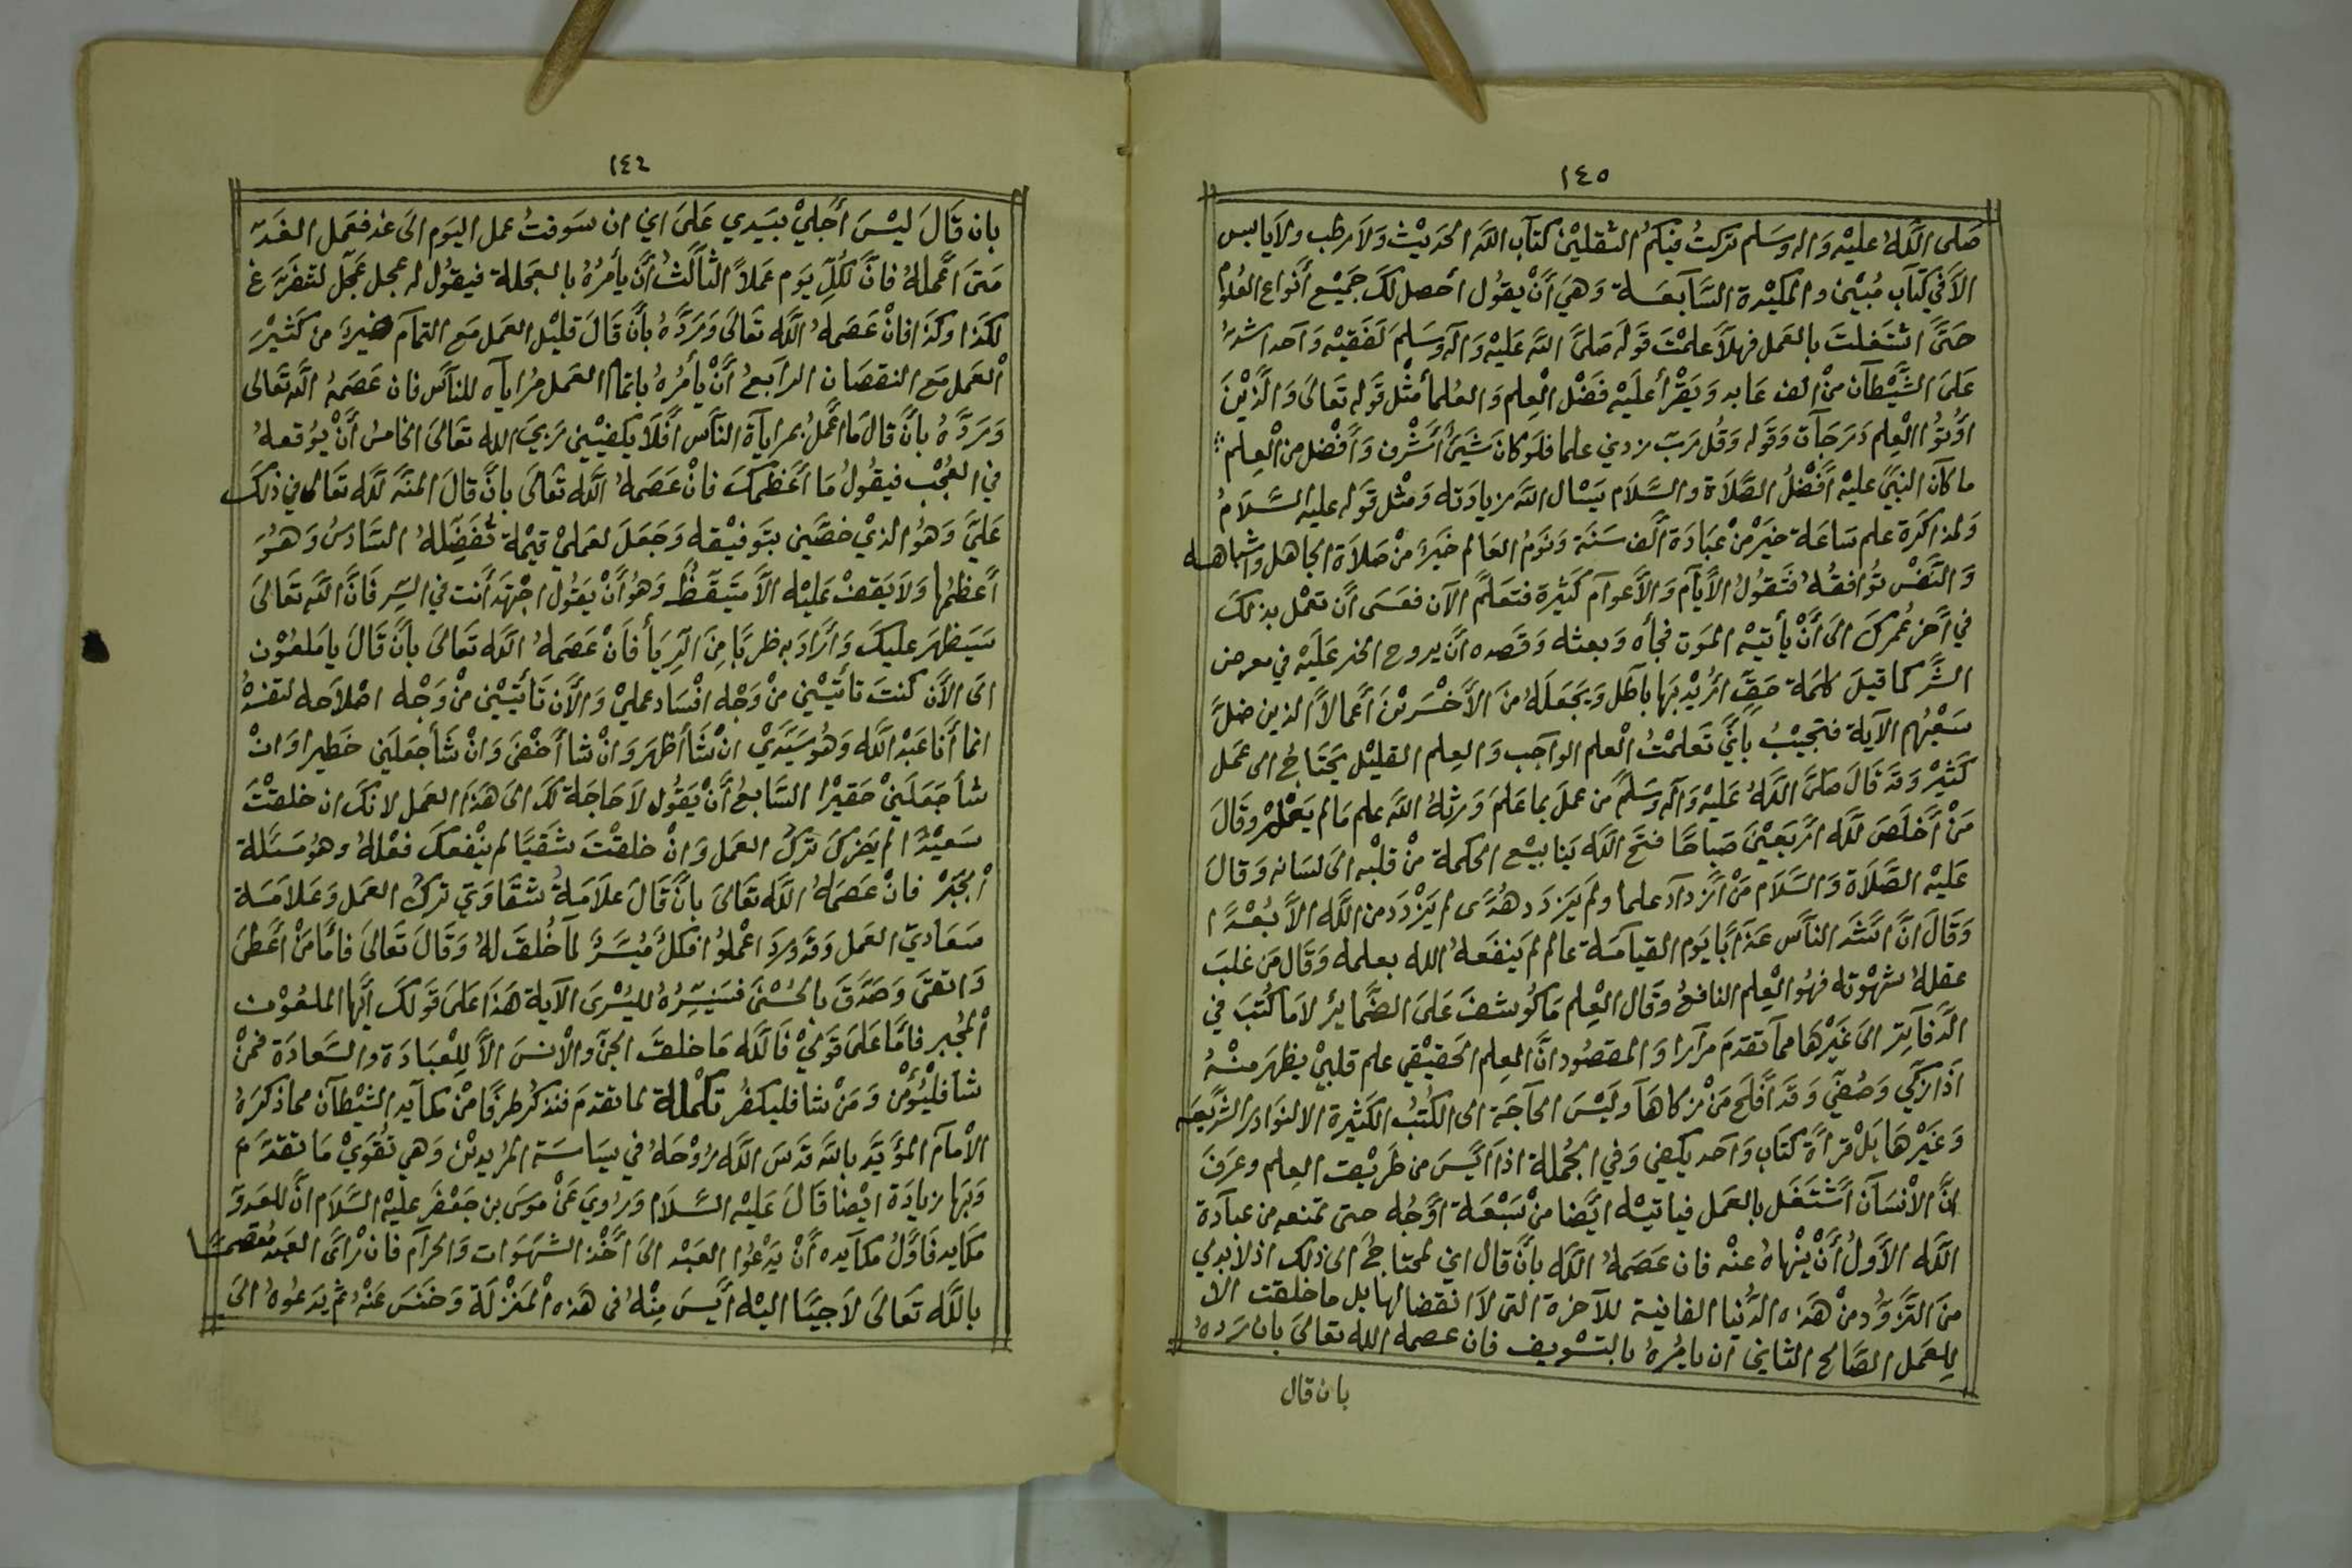 ١٤٥
صَلى اللَّهُ عليْه وَاله وسَلم تركتُ فيْكمُ الثقليْن كتاب اللَّه الحديْث وَلا رطب ولا يابس
الا في كتاب مُبيْن والمكيْدة السَّابعَة وَهيَ أنْ يقوُل احْصل لكَ جميْع أنواع العُلوم
حَتَّى اشتَغلتَ بالعَمل فهلاَّ علمْتَ قوَله صَلىَّ اللَّه عَليْه وَاله وسَلم لفَقيْه وَاحد اشدُّ
عَلىَ الشَّيْطان منْ الف عَابد وَيَقرْأ عليَه فضْل الْعِلم وَالعُلما مثْل قوَله تعَالىَ وَالَّذيْنَ
اوُتوُا الْعِلم دَرجَات وَقوَله وَقُل رَبّ زدني علما فلوَ كانَ شيَئ أشْرف وَأفْضل من الْعِلم
ما كان النبيّ عليْه أفْضلُ الصَّلاة والسَّلام يَسْال اللَّه زيادَته وَمثْل قوَله عليه السَّلامُ
وَلمذاكرَة علم سَاعَة خيَرْ منْ عبَادَة ألف سَنَة وَنوَمُ العَالم خيَرْ منْ صَلاَة الجاهل واشباهه
وَالنَّفْس توُافقُهُ فتَقوُلُ الأيَّام وَالأعوام كَثيْرة فتعَلَّم الآن فعَسَى أن تعْمل بذلكَ
في أخر عُمركَ الىَ أنْ يأتيْه الموَت فجأه وَبعثه وَقصَده أن يروح الخير عَليَه في معرض
الشَّر كما قيلَ كلمَة حَقّ اريُد بَها باطَل وَيَجعَلهُ منَ الأخْسَريْنَ أعمالاً الذين ضلَّ
سَعْيُهم الآيَة فتجيْبُ بأنيَّ تعَلمْتُ الْعلم الواجب وَالعِلم القليْل يَحتَاجُ الى عَمَل
كَثيْر وَقد قَالَ صَلىَّ اللَّهُ عَليَه وَآله وسَلمَّ من عملَ بما عَلمَ وَرثهُ اللَّه علم مَا لم يَعْلمْ وقَالَ
مَنْ أخلَصَ للَّه اربَعيْنَ صَباحًا فتَحَ اللَّه يَنابيْع الحكمة منْ قلبْه الىَ لسَانه وَقالَ
عَليْه الصَّلاَة وَالسَّلاَم مَنْ ازدادَ علما ولم يَزدَد هُدًى لم يَزدَد من اللَّه الاَّ بُعْدًا
وَقَالَ انَّ اشَدَّ الناَّس عَذابًا يوَم القيامَة عالم لم يَنفَعهُ اللَّه بعلمه وَقَال مَن غلبَ
عقلهُ شهْوته فهوُ الْعِلم النافعُ وقَال الْعِلم مَا كوُشفَ عَلىَ الضَّمائر لا مَا كُتبَ في
الدَّفاتر الىَ غَيرْهَا مما تقدمَ مرارا وَالمقصوُد انَّ العِلم الحَقيْقي علم قلبيْ يظهرَ منْهُ
اذا زكّي وَصُفّي وَقدَ أفلحَ مَنْ زكاهَا وَليْسَ الحاجَة الى الكُتبُ الكثيْرة الا لنوَادر الشريعَة
وَغَيرْهَا بَلْ قراءة كتَاب وَاحد يكفي وَفي الجُملة اذا ايَسَ من طرَيْقت العِلم وعرَفَ
انَّ الانْسَان اشْتَغَل بالعَمل فيَاتيْه ايضَا منْ سَبْعَة اوْجُه حتى تمنعه من عبادَة
اللَّه الأوَّلُ أنْ يَنْهاهُ عنْه فان عَصَمهُ اللَّه بأن قال اني لمحتاجُ الى ذلك اذ لا بدلي
منَ التزَوّد منْ هَذه الدُّنيا الفانية للآخرَة التي لا انقضا لها بل ما خلقت الا
للِعَمل الصَّالح الثاني ان يامُرهُ بالتسْويف فان عصمه اللَّه تعَالىَ بان رَدهُ
بان قال
١٤٦
بان قَالَ ليْسَ أجَليْ بيَدي عَلىَ اني ان سَوفتُ عمل اليوَم الىَ غد فعَمل الغَد
مَتىَ أعمَلهُ فانَّ لكُلّ يوَم عَملاً الثَّالثُ أن يأمُرُهُ بالعجَلة فيقوُل له عجل عجّل لتفرَغ
لكَذا وكَذا فانْ عَصَمهُ اللَّه تعَالىَ وَرَدَّهُ بأنَّ قالَ قليْل العَمل مَع التمام خيرَ من كَثيْر
الْعَمل مَع النقصَان الرابَعُ أنْ يأمُرهُ باتمام العَمل مُراياه للناَّس فان عَصَمهُ اللَّه تعَالى
وَرَدَّهُ بأنَّ قالَ ما أعْملُ بمراياة الناَّس أفَلاَ يكفيْني رَبيَ اللَّه تعَالىَ الخامسُ أنْ يوُقعهُ
في العُجْب فيقوُلُ مَا أعْظمكَ فانْ عَصَمهُ اللَّه تعَالىَ بانَّ قالَ المنَّه للَّه تعَالى في ذلكَ
عَليَّ وَهُوَ الذيْ خصَّني بتَوفيْقه وَجَعَلَ لعمَليْ قيْمة تفَضّلهُ السَّادسُ وَهوُ
أعظمُها وَلا يَقفْ عَليْه الاَّ متيَقظّ وَهُوَ أنْ يقوُل اجْتهد أنتَ في السِّر فانَّ اللَّه تعَالىَ
سَيَظهرَ عليكَ وَأرادَ به ضربًا منَ الرّيَا فانْ عَصَمهُ اللَّه تعَالىَ بأنَّ قالَ يا ملعُوْن
الىَ الآن كنتَ تاتيْني منْ وَجْه افْسَاد عمليْ وَالآن تاتيْني منْ وَجْه اصْلاحه لتفسدهُ
انما أنا عَبْد اللَّه وَهُوَ سَيّديْ انْ شا أظهرَ وَانْ شا أخْفىَ وَانْ شا جَعَلنَي خَطيرا وَانْ
شأ جَعَلنيْ حَقيْرا السَّابعُ أنْ يَقوُل لا حَاجَة لكَ الىَ هَذا العَمل لانكَ ان خلقتْ
سَعيْدًا لم يَضركَ تركُ العَمل وَانْ خلقتْ شَقيًّا لم ينْفعكَ فعْلهُ وهوُ مَسئلة
الْجَبرْ فانْ عَصَمهُ اللَّه تعَالىَ بانَّ قالَ علاَمَةُ شقَاوَتي تركُ العَمل وَعَلامَة
سَعَادتي العَمل وَقدَ ورَدَ اعْملُوا فكلّ مُيسَّرٌ لما خُلقَ لهُ وَقَالَ تعَالىَ فامَّا مَنْ أعْطىَ
وَاتقىَ وَصَدَّقَ بالحُسْنىَ فسَنيسّرُهُ لليُسْرىَ الآية هَذا عَلىَ قوَلكَ أيَّها الملعُوْن
الْمجُبر فامَّا عَلىَ قوَليْ فاللَّه مَا خلقَ الجنّ وَالانْس الاَّ للِعْبَادَة والسَّعادَة فمَنْ
شا فليُؤْمن وَمَنْ شا فليكفرُ تكْملة لما تقدمَ فنذكرُ طرفًا منْ مكايد الشيْطان مما ذكرَهُ
الامَام المؤيَّد باللَّه قدَس اللَّه رُوْحَهُ في سيَاسَة المُريديْن وَهي تقوَيْ مَا تقدَّم
وَبَها زيادَة ايْضا قَالَ عَليْه السَّلام وَروُيَ عَنْ موسَى بن جَعْفرَ عليْه السَّلاَم انَّ للعَدوّ
مكايد فأوَّلُ مكايده أنْ يَدْعُوا العَبْد الىَ أخْذ الشهَوَات وَالحرام فان رْأىَ العَبد مُعْتصمًا
باللَّه تعَالىَ لاجيًا اليْه أيسَ مِنْهُ في هَذه الْمَنزْلَة وَخَنسَ عَنْهُ ثمّ يَدعُوهُ الىَ